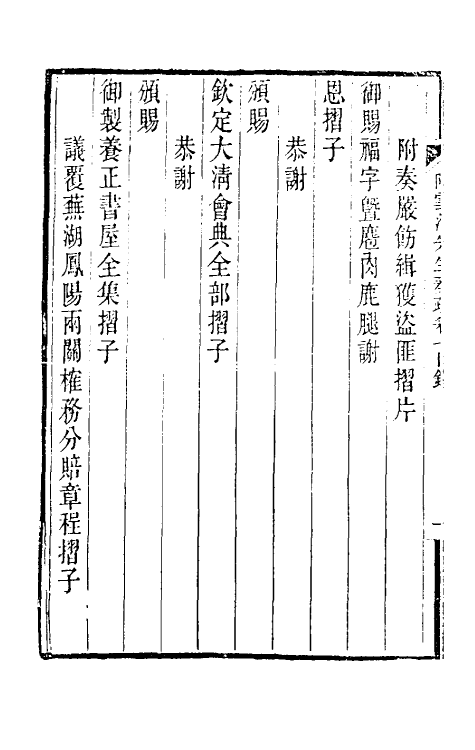 附奏嚴飭緝獲盜匪摺片
御賜福字暨麅肉鹿腿謝
恩摺子
恭謝
頒賜
欽定大清會典全部摺子
恭謝
頒賜
御製養正書屋全集摺子
議覆蕪湖鳳陽兩關榷務分賠章程摺子